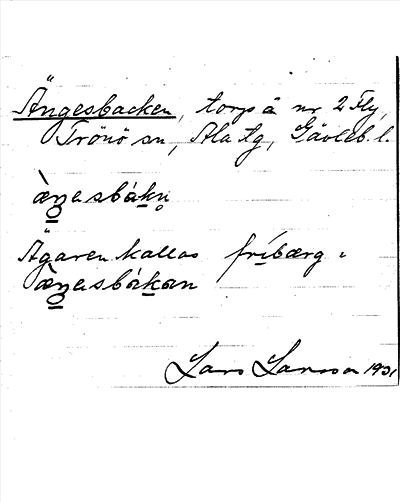 Ängesbacken, torp å nr 2 Fly,
Trönö sn, Ala tg, Gävleb. l.
æ̀ŋasbákn̥
Ägaren kallas fríbærg i
æ̀ŋasbákan
Lars Larsson 1931